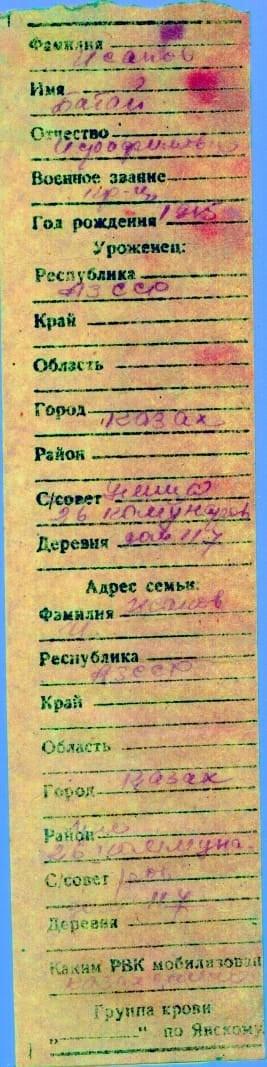 Фамилия
Исаков
Имя
Отчество
Военное звание
кр-ц
Год рождения 1915
Уроженец:
Республика
АЗССР
Край
Область
Город
Казах
Район
С/совет
26 комунаров
Деревня дом 117
Адрес семьи:
Фамилия Исаков
Республика
АЗССР
Край
Область
Город Казах
Район
26 коммуна-
С/совет ров
117
Деревня
Каким РВК мобилизован
Группа крови
„ “ по Янскому